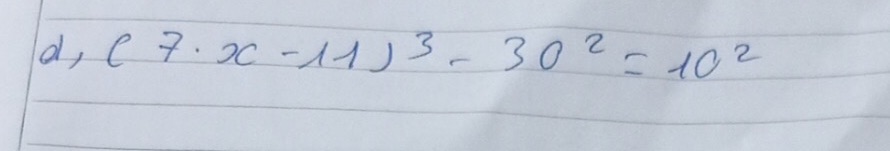 d, (7.x-11)³ - 30² = 10²